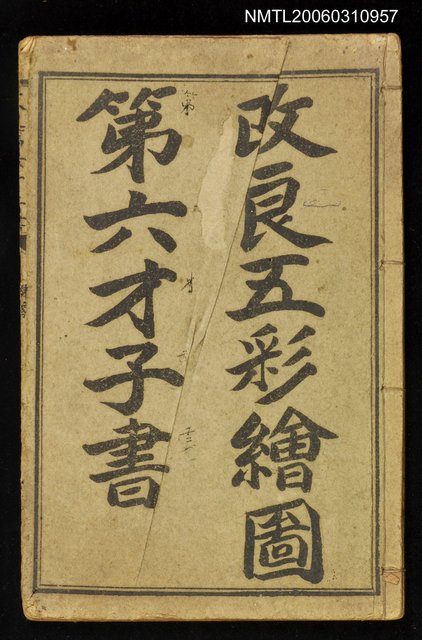 NMTL20060310957
改良五彩繪圖
第六才子書
第
才